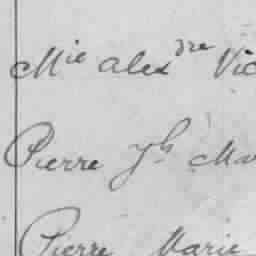 Mie alexdre Vic
Pierre Jh Ma
Pierre Marie